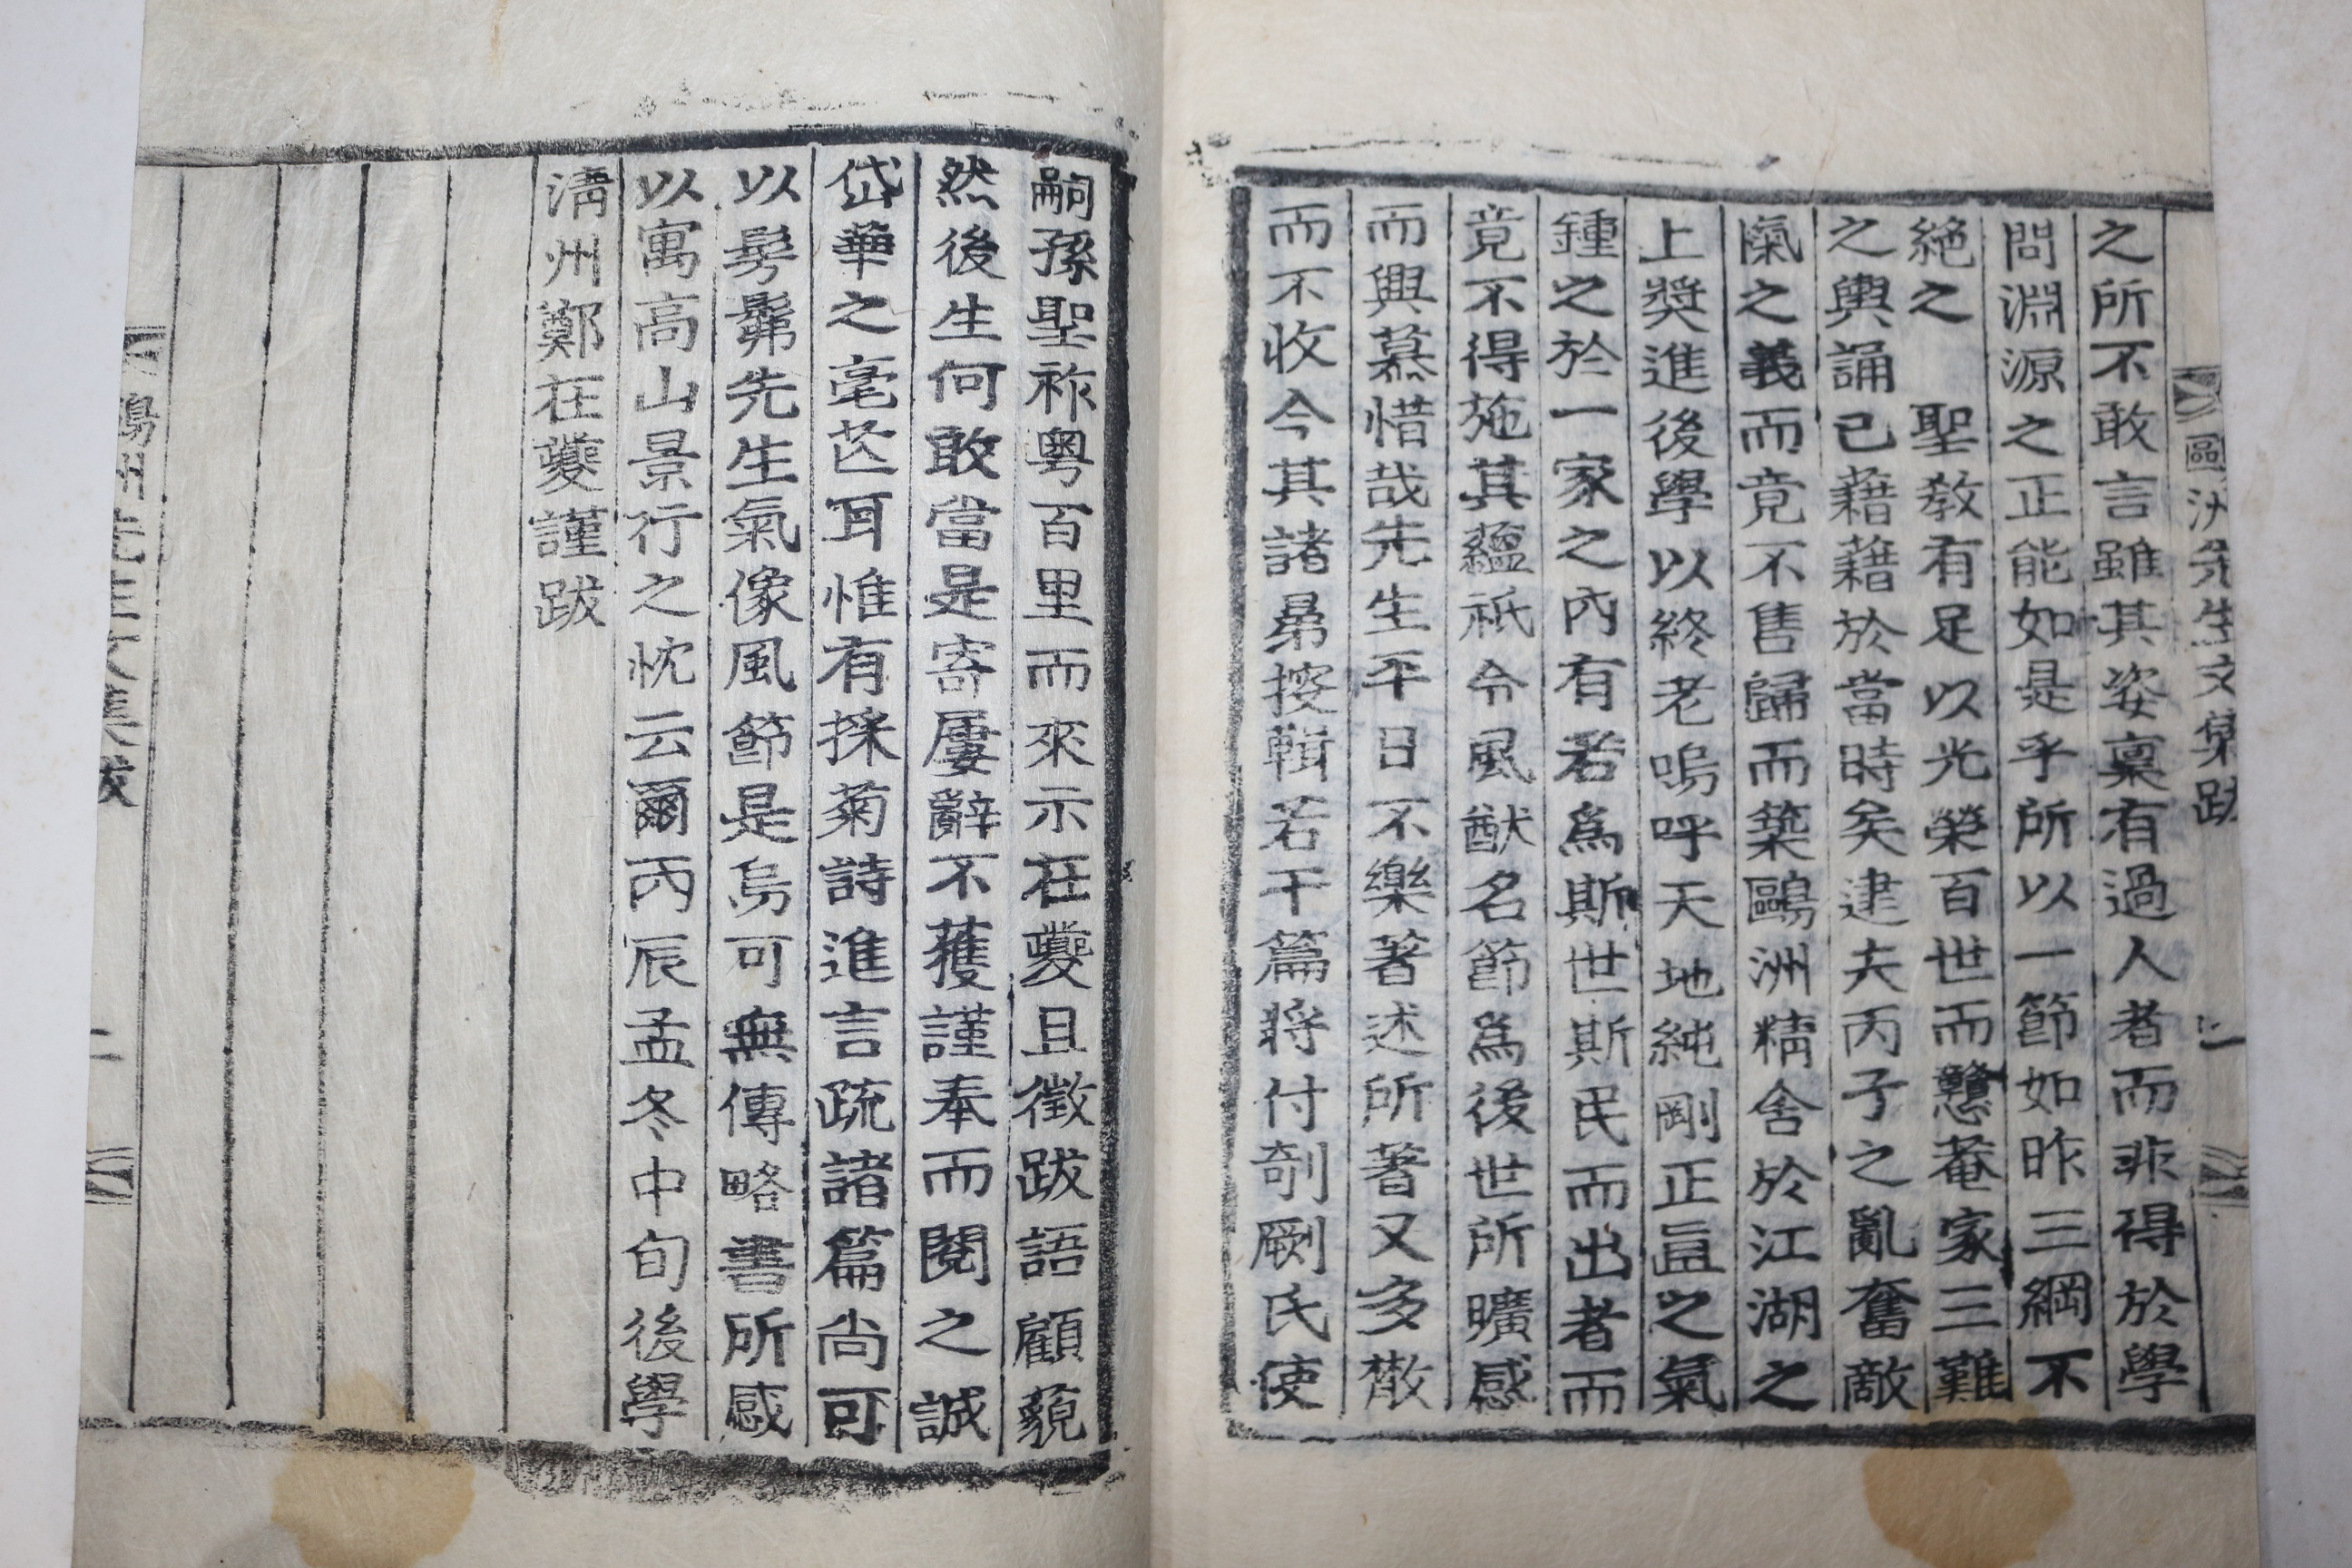 之所不敢言雖其姿稟有過人者而非得於學
問淵源之正能如是乎所以一節如昨三綱不
絕之　聖敎有足以光榮百世而戇菴家三難
之輿誦已藉藉於當時矣逮夫丙子之亂奮敵
愾之義而竟不售歸而築鷗洲精舍於江湖之
上奬進後學以終老嗚呼天地純剛正直之氣
鍾之於一家之內有若爲斯世斯民而出者而
竟不得施其蘊祇令風猷名節爲後世所曠感
而興慕惜哉先生平日不樂著述所著又多散
而不收今其諸昴按輯若干篇將付剞劂氏使
嗣孫聖祚粤百里而來示在夔且徵跋語顧藐
然後生何敢當是寄屢辭不獲謹奉而閱之誠
岱華之毫芒耳惟有採菊詩進言疏諸篇尙可
以髣髴先生氣像風節是烏可無傳略書所感
以寓高山景行之忱云爾丙辰孟冬中旬後學
淸州鄭在夔謹跋
鷗洲先生文集跋
二